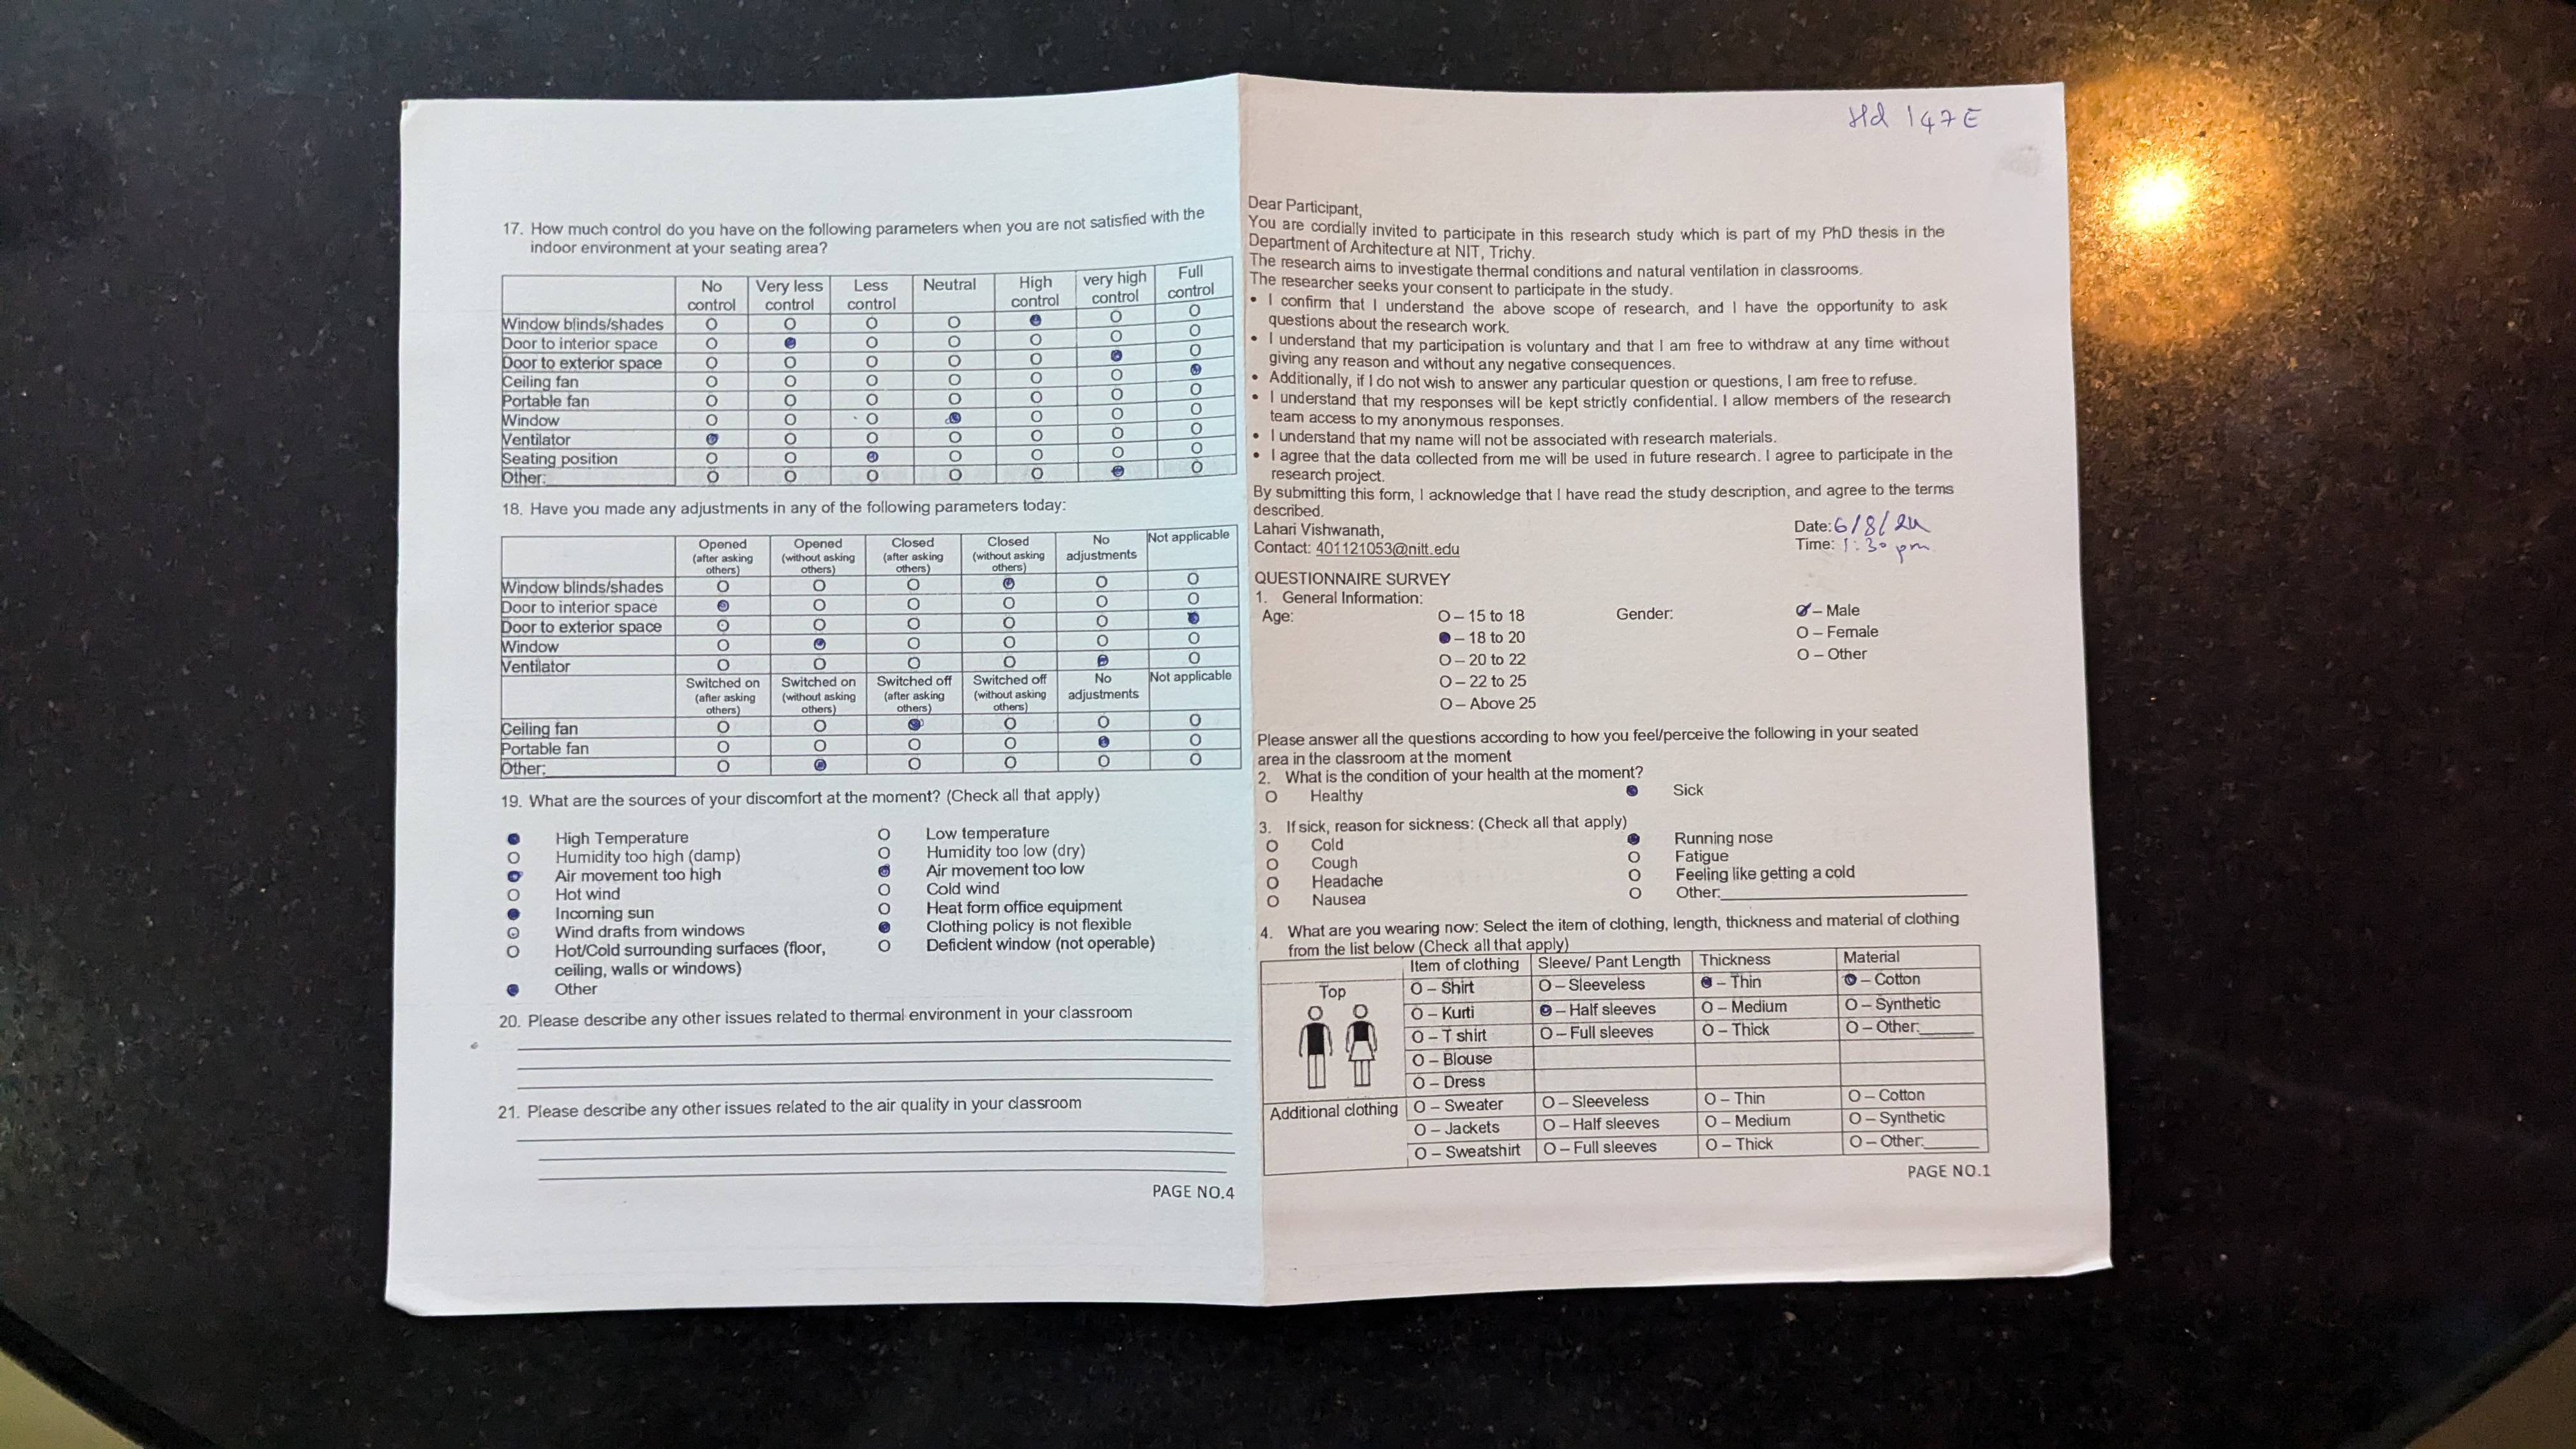 17. How much control do you have on the following parameters when you are not satisfied with the
indoor environment at your seating area?
No control Very less control Less control Neutral High control very high control Full control
Window blinds/shades O O O O ● O O
Door to interior space O ● O O O O O
Door to exterior space O O O O O ● O
Ceiling fan O O O O O O ●
Portable fan O O O O O O O
Window O O O ● O O O
Ventilator ● O O O O O O
Seating position O O ● O O O O
Other: O O O O O ● O
18. Have you made any adjustments in any of the following parameters today:
Opened (after asking others) Opened (without asking others) Closed (after asking others) Closed (without asking others) No adjustments Not applicable
Window blinds/shades O O O ● O O
Door to interior space ● O O O O O
Door to exterior space O O O O O ●
Window O ● O O O O
Ventilator O O O O ● O
Switched on (after asking others) Switched on (without asking others) Switched off (after asking others) Switched off (without asking others) No adjustments Not applicable
Ceiling fan O O ● O O O
Portable fan O O O O ● O
Other: O ● O O O O
19. What are the sources of your discomfort at the moment? (Check all that apply)
● High Temperature O Low temperature
O Humidity too high (damp) O Humidity too low (dry)
● Air movement too high ● Air movement too low
O Hot wind O Cold wind
● Incoming sun O Heat form office equipment
O Wind drafts from windows ● Clothing policy is not flexible
O Hot/Cold surrounding surfaces (floor, O Deficient window (not operable)
ceiling, walls or windows)
● Other
20. Please describe any other issues related to thermal environment in your classroom
21. Please describe any other issues related to the air quality in your classroom
PAGE NO.4
Hd 147E
Dear Participant,
You are cordially invited to participate in this research study which is part of my PhD thesis in the
Department of Architecture at NIT, Trichy.
The research aims to investigate thermal conditions and natural ventilation in classrooms.
The researcher seeks your consent to participate in the study.
• I confirm that I understand the above scope of research, and I have the opportunity to ask
questions about the research work.
• I understand that my participation is voluntary and that I am free to withdraw at any time without
giving any reason and without any negative consequences.
• Additionally, if I do not wish to answer any particular question or questions, I am free to refuse.
• I understand that my responses will be kept strictly confidential. I allow members of the research
team access to my anonymous responses.
• I understand that my name will not be associated with research materials.
• I agree that the data collected from me will be used in future research. I agree to participate in the
research project.
By submitting this form, I acknowledge that I have read the study description, and agree to the terms
described.
Lahari Vishwanath, Date: 6/8/24
Contact: 401121053@nitt.edu Time: 1:30 pm
QUESTIONNAIRE SURVEY
1. General Information:
Age: O – 15 to 18 Gender: ● – Male
● – 18 to 20 O – Female
O – 20 to 22 O – Other
O – 22 to 25
O – Above 25
Please answer all the questions according to how you feel/perceive the following in your seated
area in the classroom at the moment
2. What is the condition of your health at the moment?
O Healthy ● Sick
3. If sick, reason for sickness: (Check all that apply)
O Cold ● Running nose
O Cough O Fatigue
O Headache O Feeling like getting a cold
O Nausea O Other:
4. What are you wearing now: Select the item of clothing, length, thickness and material of clothing
from the list below (Check all that apply)
Item of clothing Sleeve/ Pant Length Thickness Material
Top O – Shirt O – Sleeveless ● – Thin ● – Cotton
O – Kurti ● – Half sleeves O – Medium O – Synthetic
O – T shirt O – Full sleeves O – Thick O – Other:
O – Blouse
O – Dress
Additional clothing O – Sweater O – Sleeveless O – Thin O – Cotton
O – Jackets O – Half sleeves O – Medium O – Synthetic
O – Sweatshirt O – Full sleeves O – Thick O – Other:
PAGE NO.1